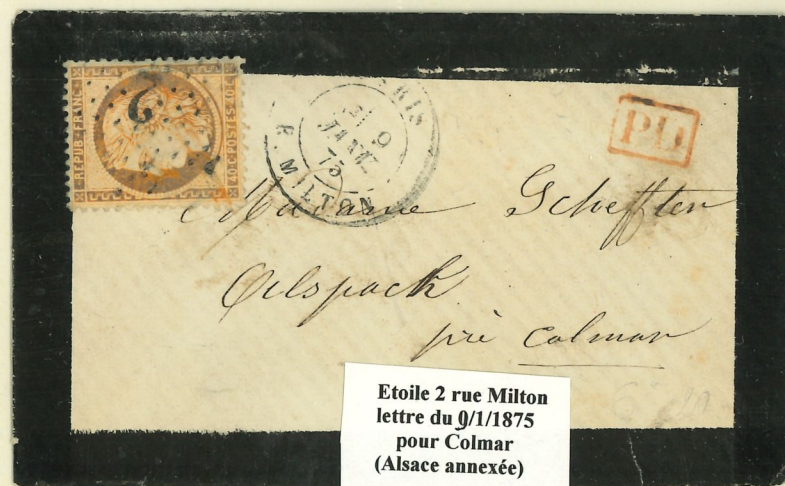 REPUB·FRANC·
40·C·POSTES·40·C
2
PARIS
9
JANV.
75
R. MILTON
PD
Madame Scheffter
près Colmar
Etoile 2 rue Milton
lettre du 9/1/1875
pour Colmar
(Alsace annexée)